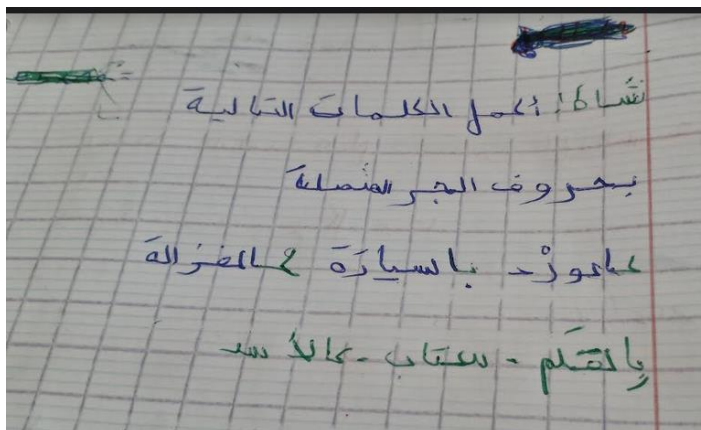 نشاط: أكمل الكلمات التالية
بحروف الجر المتصلة
كالورْد بالسيارَة كالغزالة
بِالقَلم - للكتاب - كالأسد